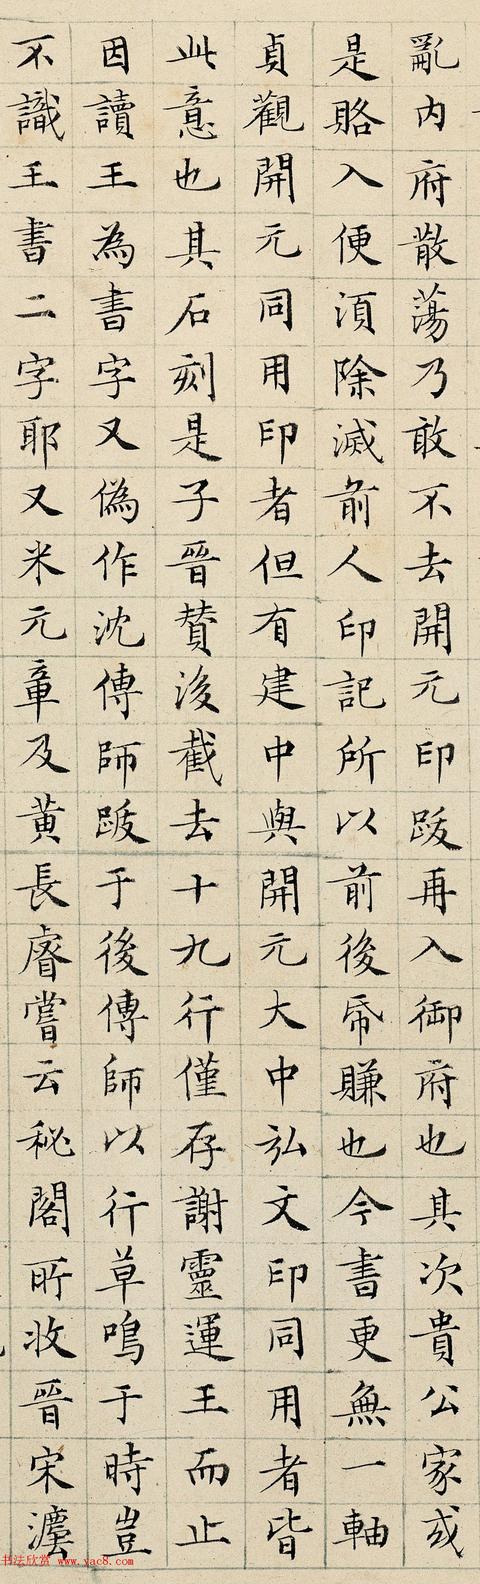 亂内府散蕩乃敢不去開元印跋再入御府也其次貴公家或
是賂入便須除滅前人印記所以前後帋賺也今書更無一軸
貞觀開元同用印者但有建中與開元大中弘文印同用者皆
此意也其石刻是子晉贊後截去十九行僅存謝靈運王而止
因讀王為書字又偽作沈傳師跋于後傳師以行草鳴于時豈
不識王書二字耶又米元章及黄長睿嘗云秘閣所收晉宋灋
书法欣赏 www.yac8.com